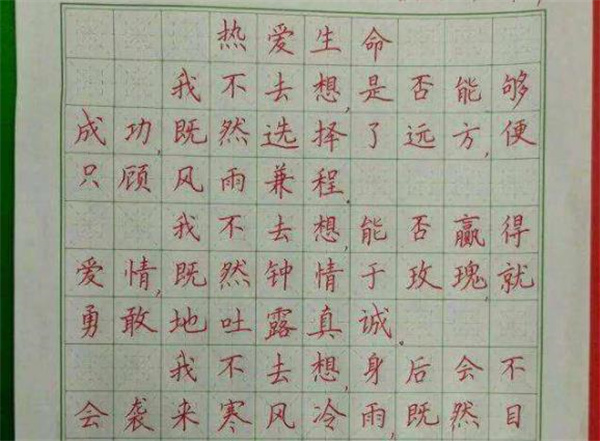 热爱生命
我不去想,是否能够
成功,既然选择了远方,便
只顾风雨兼程.
我不去想,能否赢得
爱情,既然钟情于玫瑰,就
勇敢地吐露真诚.
我不去想,身后会不
会袭来寒风冷雨,既然目